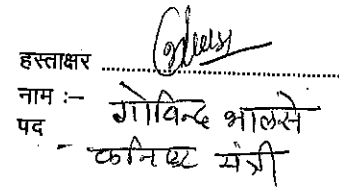 हस्ताक्षर ....................
नाम :– गोविन्द भालसे
पद - कनिष्ट मंत्री